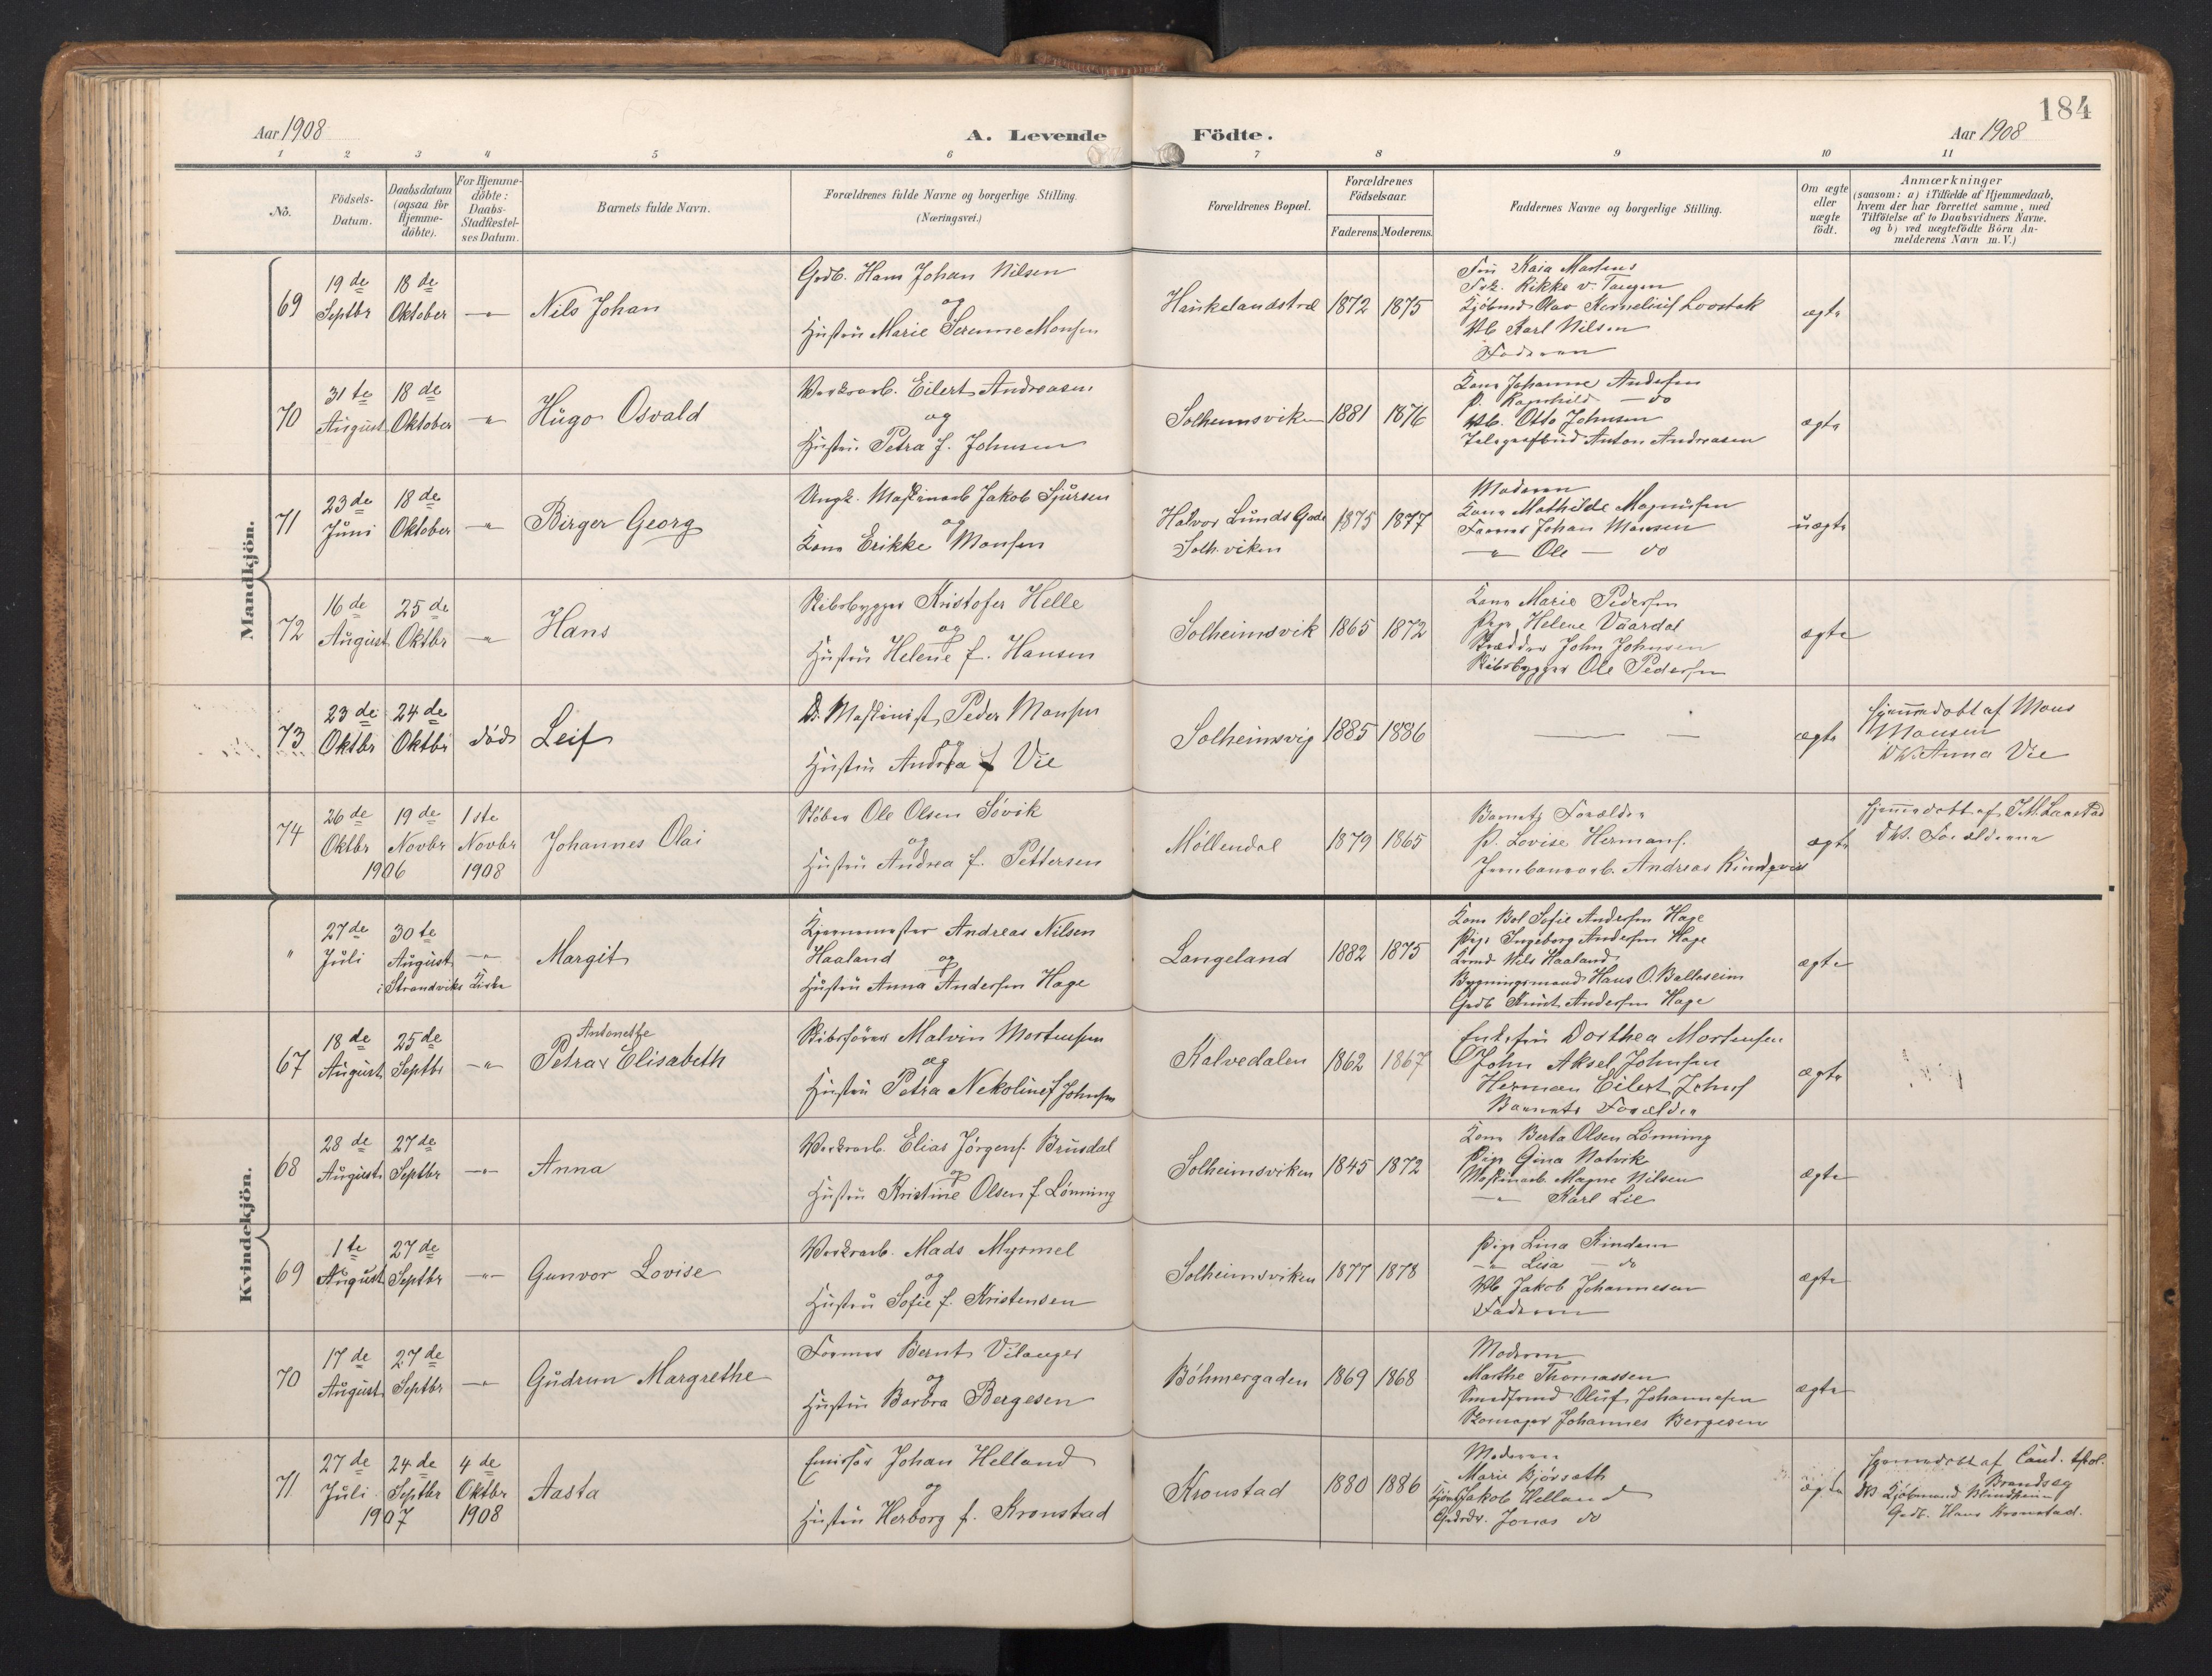 184
Aar 1908
A. Levende Födte.
Aar 1908
1 2 3 4 5 6 7 8 9 10 11
No.
Födsels-Datum.
Daabsdatum (ogsaa for Hjemmedöbte).
For Hjemmedöbte: Daabs-Stadfæstelses Datum.
Barnets fulde Navn.
Forældrenes fulde Navne og borgerlige Stilling.
(Næringsvei.)
Forældrenes Bopæl.
Forældrenes Födselsaar.
Faderens. Moderens.
Faddernes Navne og borgerlige Stilling.
Om ægte eller uægte födt.
Anmærkninger
(saasom: a) i Tilfælde af Hjemmedaab, hvem der har forrettet samme, med Tilföielse af to Daabsvidners Navne, og b) ved uægtefödte Börn Anmelderens Navn m. V.)
Mandkjön.
69
19de Septbr
18de Oktober
—"—
Nils Johan
Grdb. Hans Johan Nilsen
og
Hustru Marie Serenne Monsen
Haukelandstræ
1872 1875
Fru Kaia Martens
Frk. Rikke v. Tangen
Kjöbmd Olav Kornelius Lovstak
Karl Nilsen
Faderen
ægte
70
31te August
18de Oktober
—"—
Hugo Osvald
Værksarb. Eilert Andreasen
og
Hustru Petra f. Johnsen
Solheimsviken
1881 1876
Kone Johanne Andersen
P. Ragnhild — do
Otto Johnsen
Telegrafbud Anton Andreasen
ægte
71
23de Juni
18de Oktober
—"—
Birger Georg
Ungk. Maskinarb Jakob Sjursen
og
Kone Erikke Monsen
Halvor Lunds Gade
Solh.viken
1875 1877
Moderen
Kone Mathilde Magnusen
Former Johan Monsen
—"— Ole — do
uægte
72
16de August
25de Oktbr
—"—
Hans
Skibsbygger Kristofer Helle
og
Hustru Helene f. Hansen
Solheimsvik
1865 1872
Kone Marie Pedersen
Pige Helene Vaardal
Skrædder John Johnsen
Skibsbygger Ole Pedersen
ægte
73
23de Oktbr
24de Oktbr
död
Leif
D. Maskinist Peder Monsen
og
Hustru Andrea f Vie
Solheimsvig
1885 1886
— —
ægte
Hjemmedöbt af Mons
Monsen
DV. Anna Vie
74
26de Oktbr
19de Novbr
1906
1ste Novbr
1908
Johannes Olai
Stöber Ole Olsen Sövik
og
Hustru Andrea f. Pettersen
Möllendal
1879 1865
Barnets Forældre
P. Lovise Hermans.
Jernbanearb. Andreas
ægte
Hjemmedöbt af
DV. Forældrene
Kvindekjön.
"
27de Juli
30te August
i Strandviks Kirke
—"—
Margit
Andreas Nilsen
Haaland og
Hustru Anna Andersen Hage
Langeland
1882 1875
Kone Bol Sofie Andersen Hage
Pige Ingeborg Andersen Hage
Nils Haaland
Bygningsmand Hans O. Balleseim
Grdb Knut Andersen Hage
ægte
67
18de August
25de Septbr
—"—
Antonette
Petra v Elisabeth
Skibsförer Malvin Mortensen
og
Hustru Petra Nekoline f Johnsen
Kalvedalen
1862 1867
Enkefru Dorthea Mortensen
John Aksel Johnsen
Herman Eilert Johns
Barnets Forældre
ægte
68
28de August
27de Septbr
—"—
Anna
Værksarb. Elias Jörgens. Brusdal
og
Hustru Kristine Olsen f Lönning
Solheimsviken
1845 1872
Kone Berta Olsen Lönning
Pige Gina Natvik
Maskinarb. Magne Nilsen
—"— Karl Lie
ægte
69
1te August
27de Septbr
—"—
Gunvor Lovise
Værksarb. Mads Myrmel
og
Hustru Sofie f. Kristensen
Solheimsviken
1877 1878
Pige Lina Kindem
—"— Lisa — do
Jakob Johannesen
Faderen
ægte
70
17de August
27de Septbr
—"—
Gudrun Margrethe
Former Bernt Vilanger
og
Hustru Barbra Bergesen
Böhmergaden
1869 1868
Moderen
Marthe Thomassen
Smedsvend Oluf Johannesen
Skomager Johannes Bergesen
ægte
71
27de Juli
24de Septbr
1907
4de Oktbr
1908
Aasta
Emissör Johan Helland
og
Hustru Herborg f. Kronstad
Kronstad
1880 1886
Moderen
Marie
Jakob Helland
Jonas do
ægte
Hjemmedöbt af Cand. theol.
Brandseg
DV Kjöbmand Blindheim
Grdb. Hans Kronstad.